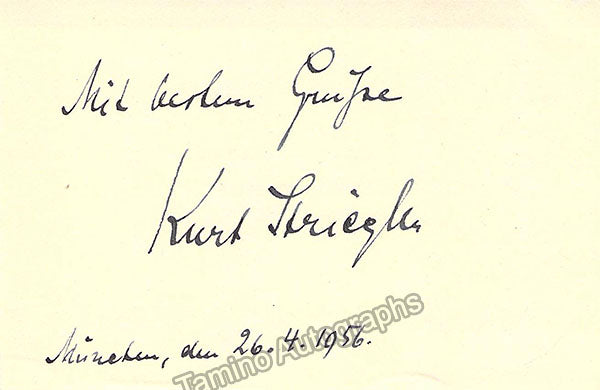 Mit bestem Gruße
Kurt Striegler
München, den 26.4.1956.
Tamino Autographs